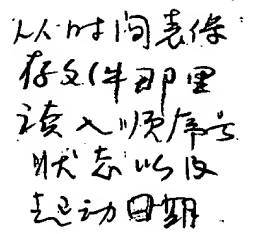 从时间表保
存文件那里
读入顺序号
状态以及
起动日期